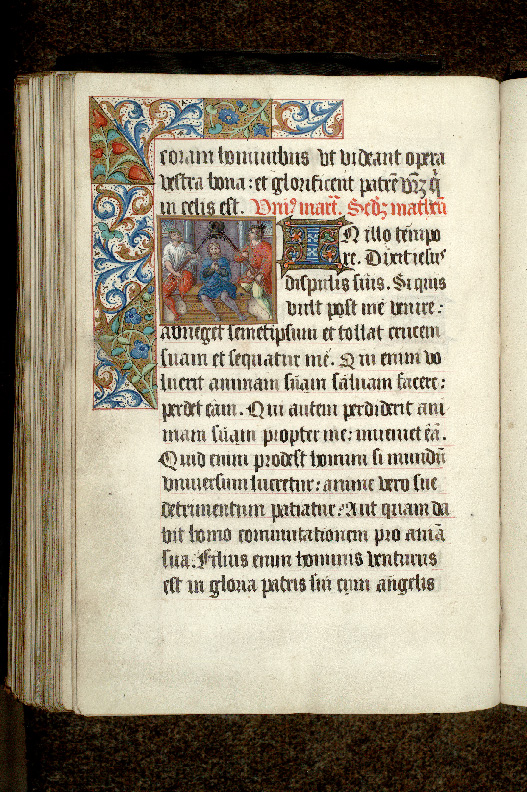 coram hominibus vt videant opera
vestra bona: et glorificent patrē vr̄ꝫ q̄
in celis est. Vniꝰ mart̄. Sedꝫ matheū
In illo tempo
re. Dixit iesus
discipulis suis. Si quis
vult post me venire:
abneget semetipsum et tollat crucem
suam et sequatur me. Qui enim vo
luerit animam suam saluam facere:
perdet eam. Qui autem perdiderit ani
mam suam propter me: inueniet eā.
Quid enim prodest homini si mundū
vniuersum lucretur: anime vero sue
detrimentum patiatur: Aut quam da
bit homo commutationem pro aīa
sua. Filius enim hominis venturus
est in gloria patris sui cum angelis